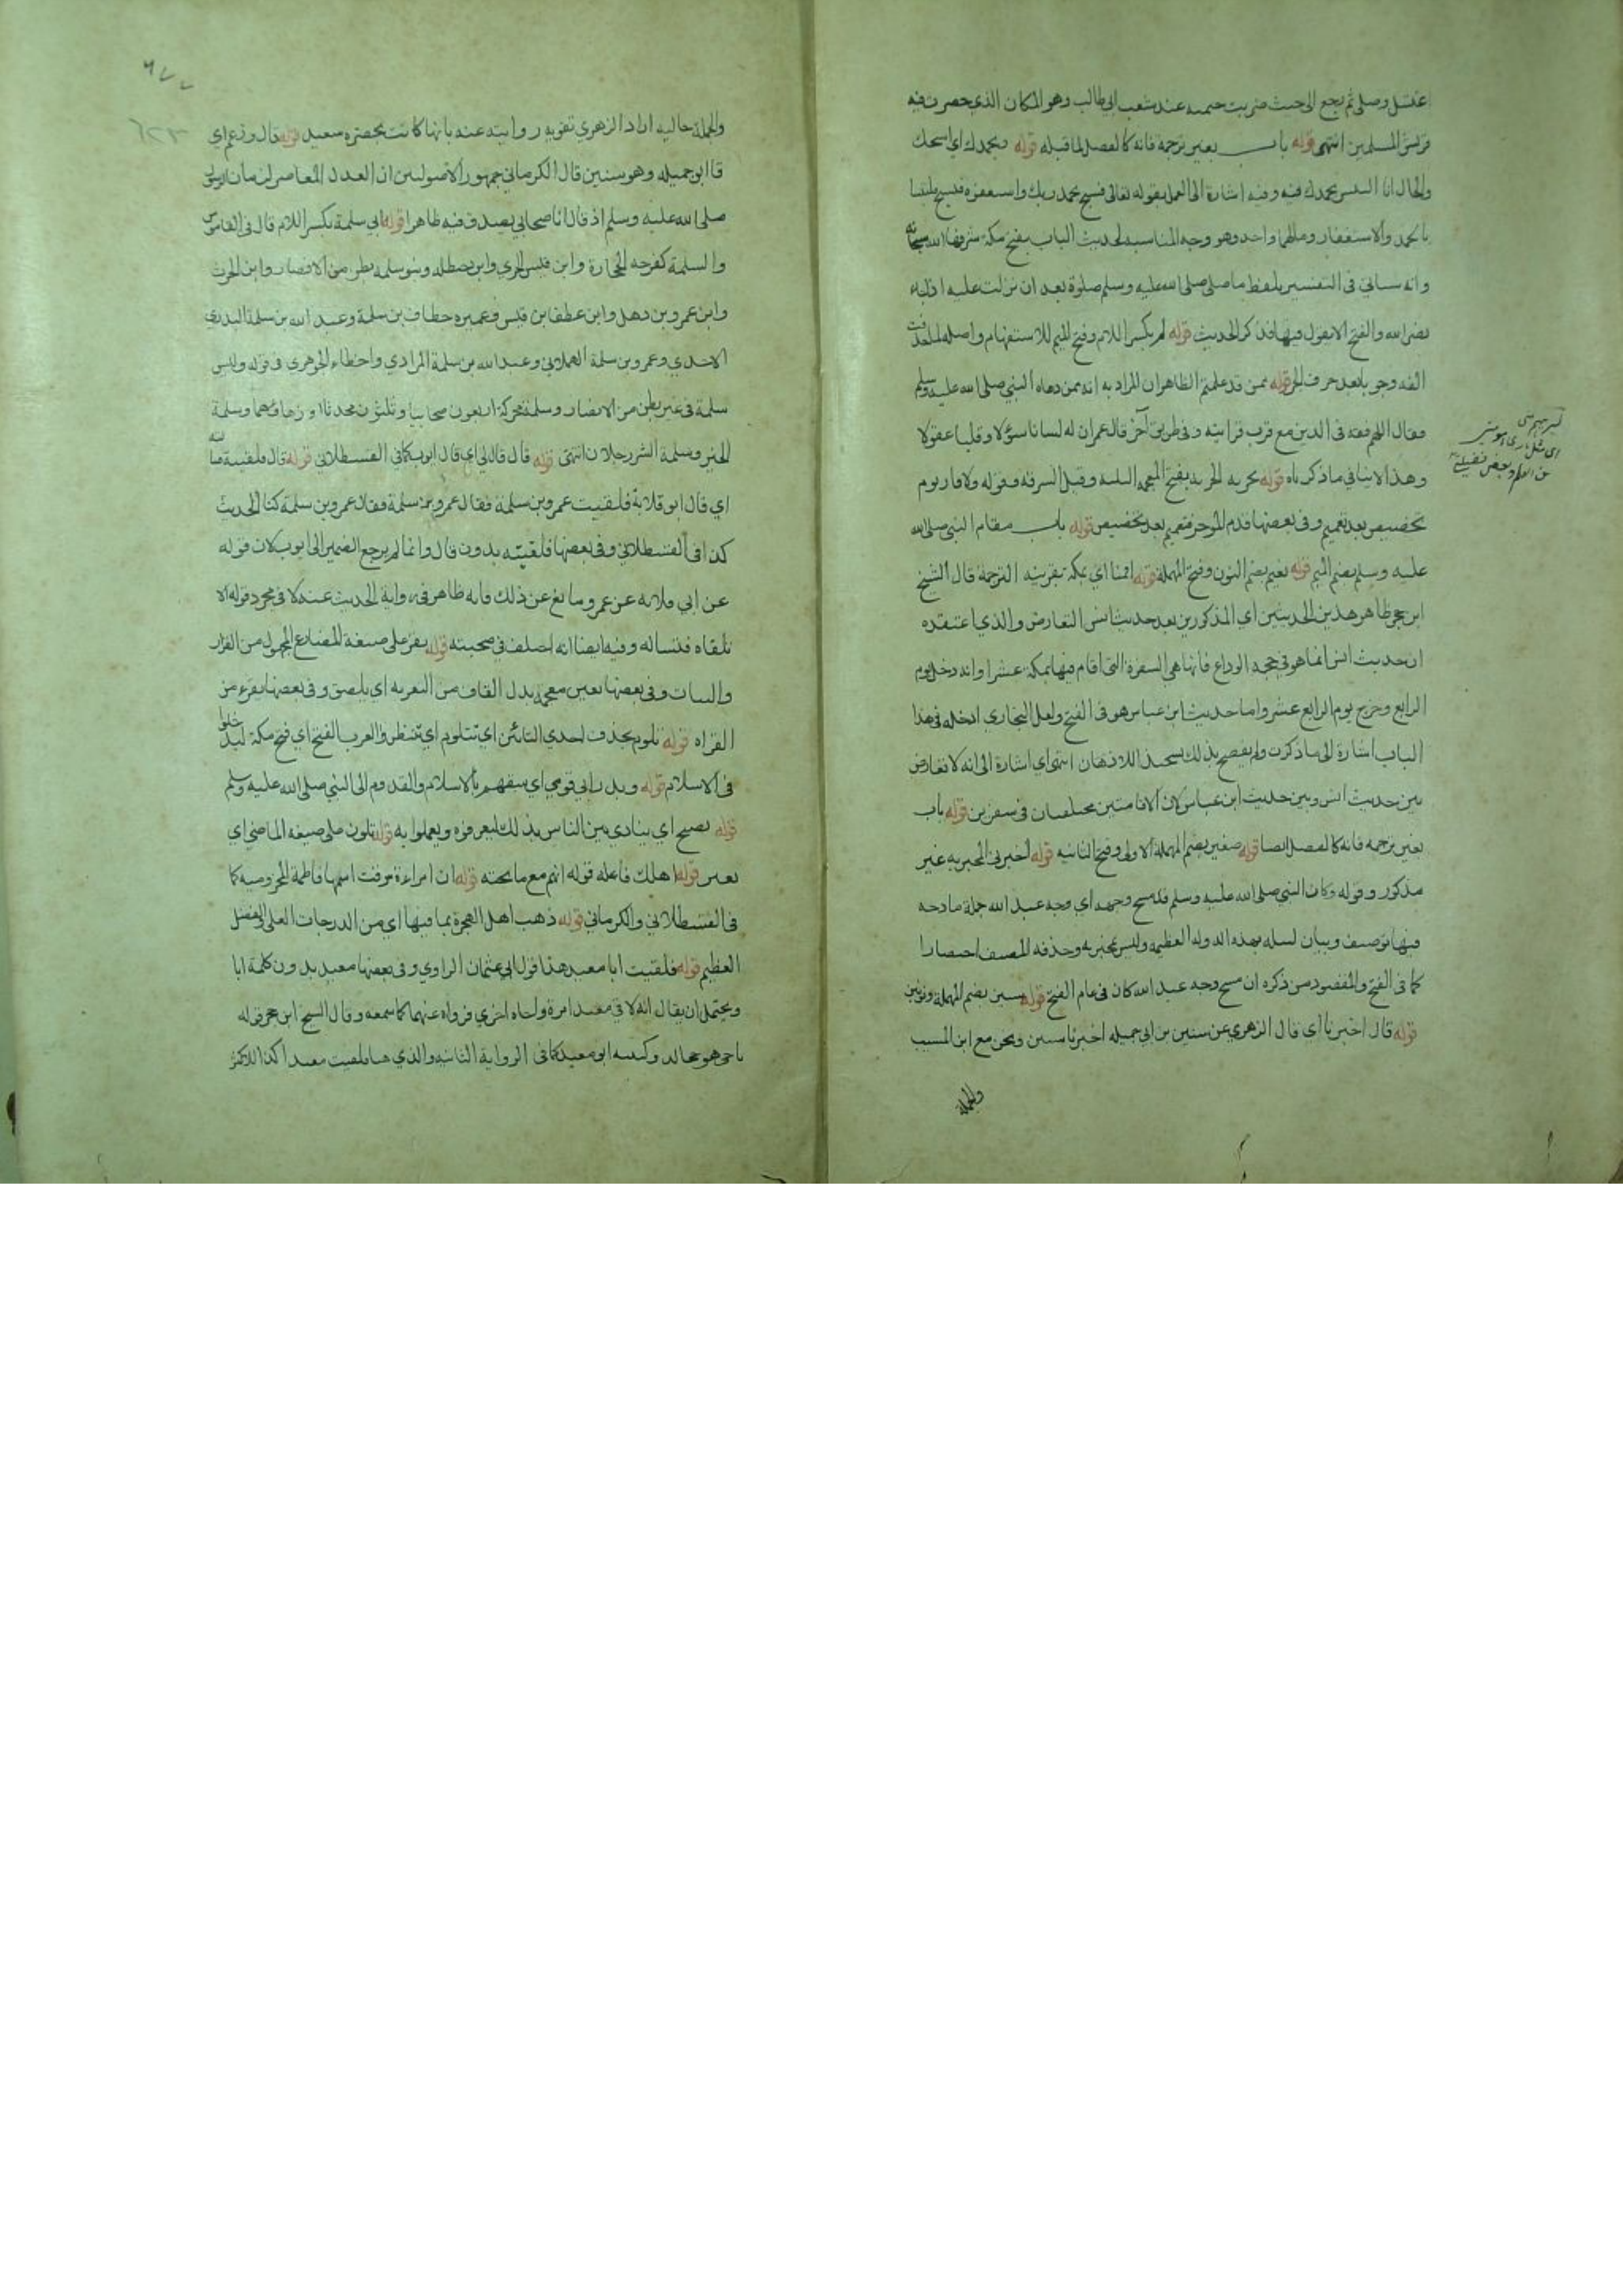 اغتسل وصلى ثم رجع الى حيث ضربت خيمته عند شعب ابي طالب وهو المكان الذي حصرت فيه
قريش المسلمين انتهى قوله باب بغير ترجمة فانه كالفصل لما قبله قوله وبحمدك اي اسبحك
والحال انا اتلبس بحمدك فيه وفيه اشارة الى العمل بقوله تعالى فسبح بحمد ربك واستغفره فسبح متلبسا
بالحمد والاستغفار ومالهما واحد وهو وجه المناسبة لحديث الباب بفتح مكة شرفها الله سبحانه
وانه سياتي في التفسير بلفظ ما صلى صلى الله عليه وسلم صلوة بعد ان نزلت عليه اذا جاء
نصر الله والفتح الا يقول فيها فذكر الحديث قوله لم بكسر اللام وفتح الميم للاستفهام واصله لما حذفت
الفه وجوبا بعد حرف الجر قوله ممن قد علمتم الظاهر ان المراد به انه ممن دعاه النبي صلى الله عليه وسلم
فقال اللهم فقهه في الدين مع قرب قرابته وفي طريق آخر قال عمر ان له لسانا سؤلا وقلبا عقولا
وهذا لا ينافي ما ذكرناه قوله بخربة الخربة بفتح المعجمة البلية وقيل السرقة وقوله ولا فارا بدم
تخصيص بعد تعميم وفي بعضها قدم المؤخر فتعميم بعد تخصيص قوله باب مقام النبي صلى الله
عليه وسلم بضم الميم قوله نعيم بضم النون وفتح المهملة قوله اقمنا اي بمكة بقرينة الترجمة قال الشيخ
ابن حجر ظاهر هذين الحديثين اي المذكورين بعد حديث انس التعارض والذي اعتقده
ان حديث انس انما هو في حجة الوداع فانها هي السفرة التي اقام فيها بمكة عشرا وانه دخل يوم
الرابع وخرج يوم الرابع عشر واما حديث ابن عباس هو في الفتح ولعل البخاري ادخله في هذا
الباب اشارة الى ما ذكرت ولم يفصح بذلك تشحيذا للاذهان انتهى اي اشارة الى انه لا تعارض
بين حديث انس وبين حديث ابن عباس لان الاقامتين مختلفتان في سفرين قوله باب
بغير ترجمة فانه كالفصل ايضا قوله صعير بضم المهملة الاولى وفتح الثانية قوله اخبرني المخبر به غير
مذكور وقوله وكان النبي صلى الله عليه وسلم قد مسح وجهه اي وجه عبد الله جملة مادحة
فيها توصيف وبيان لنيله بهذه الدولة العظيمة وليس بمخبر به وحذفه المصنف اختصارا
كما في الفتح والمقصود من ذكره ان مسح وجه عبد الله كان في عام الفتح قوله سنين بضم المهملة ونونين
قوله قال اخبرنا اي قال الزهري عن سنين بن ابي جميلة اخبرنا سنين ونحن مع ابن المسيب
والجملة
والجملة حالية اراد الزهري تقوية روايته عنه بانها كانت بحضرة سعيد قوله قال وزعم اي
قال ابو جميلة وهو سنين قال الكرماني جمهور الاصوليين ان العدل المعاصر لزمان الرسول
صلى الله عليه وسلم اذ قال انا صحابي يصدق فيه ظاهرا قوله ابي سلمة بكسر اللام قال في القاموس
والسلمة كفرحة الحجارة وابن قيس الجرمي وابن حنظلة وبنو سلمة بطن من الانصار وابن الحرث
وابن عمرو بن ذهل وابن غطفان بن قيس وعميرة بن خفاف بن سلمة وعبد الله بن سلمة البدري
الاحدي وعمرو بن سلمة الهمداني وعبد الله بن سلمة المرادي واخطاء الجوهري في قوله وليس
سلمة في غير بطن من الانصار وسلمة محركة اربعون صحابيا وثلثون محدثا او زهاؤهما وسلمة
الخير وسلمة الشر رجلان انتهى قوله قال قال لي اي قال ايوب كما في القسطلاني قوله قال فلقيته فسالته
اي قال ابو قلابة فلقيت عمرو بن سلمة فقال عمرو بن سلمة كنا الحديث
كذا في القسطلاني وفي بعضها فلقيته بدون قال وانما لم يرجع الضمير الى ايوب لان قوله
عن ابي قلابة عن عمرو مانع عن ذلك فانه ظاهر في رواية الحديث عنه لا في مجرد قوله الا
تلقاه فتساله وفيه ايضا انه اختلف في صحبته قوله يقر على صيغة المضارع المجهول من القرار
والثبات وفي بعضها بغين معجمة بدل القاف من التغرية اي يلصق وفي بعضها يقرء من
القراة قوله تلوم بحذف احدي التائين اي تتلوم اي تنتظر والعرب الفتح اي فتح مكة ليدخلوا
في الاسلام قوله وبدر ابي قومي اي سبقهم بالاسلام والقدوم الى النبي صلى الله عليه وسلم
قوله يصيح اي ينادي بين الناس بذلك ليعرفوه ويعملوا به قوله تلون على صيغة الماضي اي
تغير قوله اهلك فاعله قوله انهم مع ما تحته قوله ان امراءة سرقت اسمها فاطمة المخزومية كما
في القسطلاني والكرماني قوله ذهب اهل الهجرة بما فيها اي من الدرجات العلى والفضل
العظيم قوله فلقيت ابا معبد هذا قول ابي عثمان الراوي وفي بعضها معبد بدون كلمة ابا
ويحتمل ان يقال انه لاقى معبدا مرة واباه اخرى فرواه عنهما كما سمعه وقال الشيخ ابن حجر قوله
باخي هو مجالد وكنيته ابو معبد كما في الرواية الثانية والذي هنا فلقيت معبدا كذا للاكثر